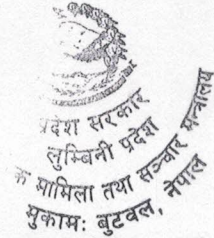 प्रदेश सरकार
लुम्बिनी प्रदेश
मामिला तथा सञ्चार मन्त्रालय
मुकामः बुटवल, नेपाल